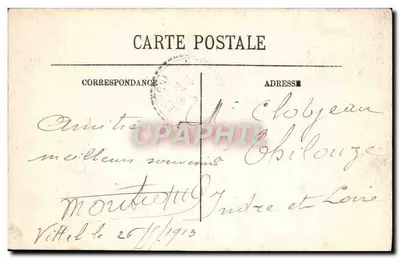 CARTE POSTALE
CORRESPONDANCE
ADRESSE
Amitiés
meilleurs souvenirs
Vittel le 26/1/1913
M Clobjean
Thilouze
Indre et Loire
CPAPHIL